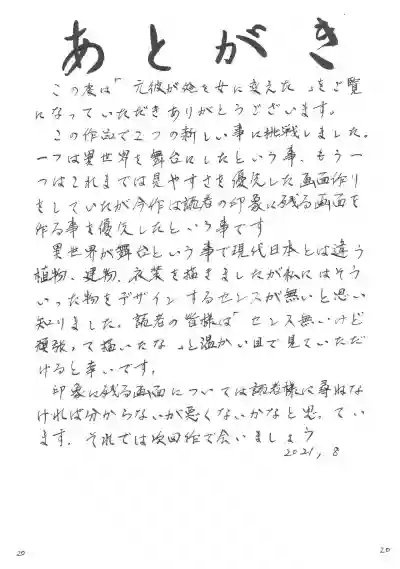 あとがき
この度は「元彼が俺を女に変えた」をご覧
になっていただきありがとうございます。
この作品で2つの新しい事に挑戦しました。
一つは異世界を舞台にしたという事、もう一
つはこれまでは見やすさを優先した画面作り
をしていたが今作は読者の印象に残る画面を
作る事を優先したという事です
異世界が舞台という事で現代日本とは違う
植物、建物、衣装を描きましたが私にはそう
いった物をデザインするセンスが無いと思い
知りました。読者の皆様は「センス無いけど
頑張って描いたな」と温かい目で見ていただ
けると幸いです。
印象に残る画面については読者様に尋ねな
ければ分からないが悪くないかなと思ってい
ます。それでは次回作で会いましょう
2021, 8
20
20